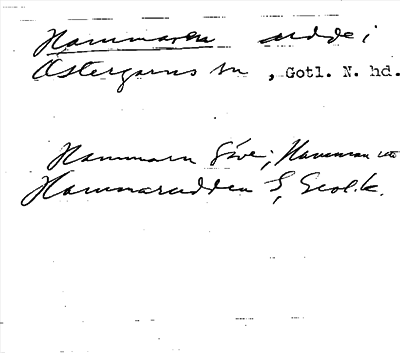 Hammaren udde i
Östergarns sn, Gotl. N. hd.
Hammarn Gsve; Hamman
Hammarudden S, Geol.k.